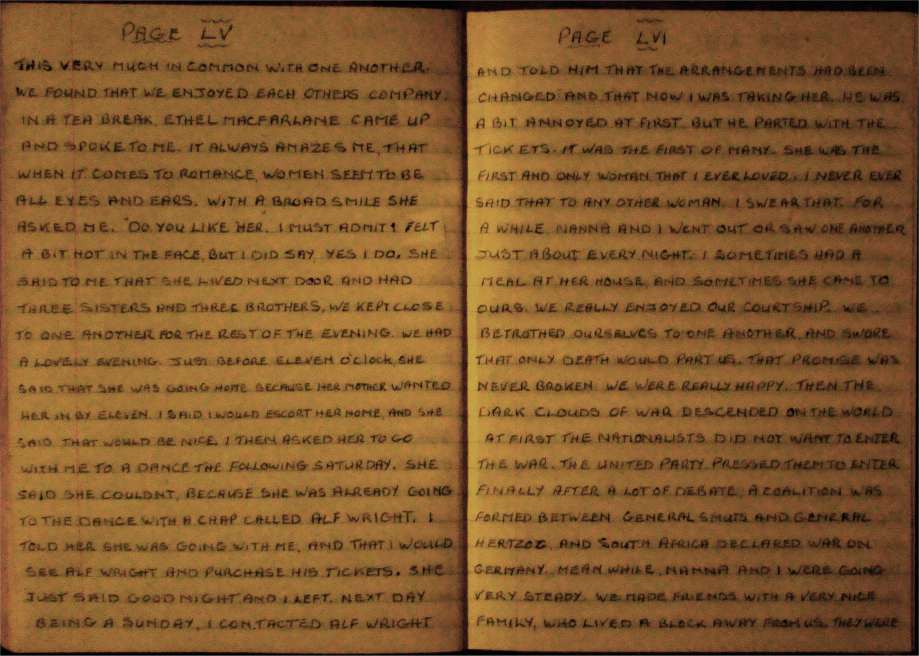 PAGE LV
THIS VERY MUCH IN COMMON WITH ONE ANOTHER.
WE FOUND THAT WE ENJOYED EACH OTHERS COMPANY.
IN A TEA BREAK, ETHEL MACFARLANE CAME UP
AND SPOKE TO ME. IT ALWAYS AMAZES ME, THAT
WHEN IT COMES TO ROMANCE, WOMEN SEEM TO BE
ALL EYES AND EARS. WITH A BROAD SMILE SHE
ASKED ME. "DO YOU LIKE HER. I MUST ADMIT I FELT
A BIT HOT IN THE FACE, BUT I DID SAY, YES I DO. SHE
SAID TO ME THAT SHE LIVED NEXT DOOR AND HAD
THREE SISTERS AND THREE BROTHERS, WE KEPT CLOSE
TO ONE ANOTHER FOR THE REST OF THE EVENING. WE HAD
A LOVELY EVENING. JUST BEFORE ELEVEN O'CLOCK, SHE
SAID THAT SHE WAS GOING HOME BECAUSE HER MOTHER WANTED
HER IN BY ELEVEN. I SAID I WOULD ESCORT HER HOME, AND SHE
SAID THAT WOULD BE NICE. I THEN ASKED HER TO GO
WITH ME TO A DANCE THE FOLLOWING SATURDAY. SHE
SAID SHE COULDNT, BECAUSE SHE WAS ALREADY GOING
TO THE DANCE WITH A CHAP CALLED ALF WRIGHT. I
TOLD HER SHE WAS GOING WITH ME, AND THAT I WOULD
SEE ALF WRIGHT AND PURCHASE HIS TICKETS. SHE
JUST SAID GOOD NIGHT AND I LEFT. NEXT DAY
BEING A SUNDAY, I CONTACTED ALF WRIGHT
PAGE LVI
AND TOLD HIM THAT THE ARRANGEMENTS HAD BEEN
CHANGED AND THAT NOW I WAS TAKING HER. HE WAS
A BIT ANNOYED AT FIRST. BUT HE PARTED WITH THE
TICKETS. IT WAS THE FIRST OF MANY. SHE WAS THE
FIRST AND ONLY WOMAN THAT I EVER LOVED. I NEVER EVER
SAID THAT TO ANY OTHER WOMAN. I SWEAR THAT. FOR
A WHILE NANNA AND I WENT OUT OR SAW ONE ANOTHER
JUST ABOUT EVERY NIGHT. I SOMETIMES HAD A
MEAL AT HER HOUSE, AND SOMETIMES SHE CAME TO
OURS. WE REALLY ENJOYED OUR COURTSHIP. WE
BETROTHED OURSELVES TO ONE ANOTHER, AND SWORE
THAT ONLY DEATH WOULD PART US. THAT PROMISE WAS
NEVER BROKEN. WE WERE REALLY HAPPY. THEN THE
DARK CLOUDS OF WAR DESCENDED ON THE WORLD
AT FIRST THE NATIONALISTS DID NOT WANT TO ENTER
THE WAR. THE UNITED PARTY PRESSED THEM TO ENTER
FINALLY AFTER A LOT OF DEBATE, A COALITION WAS
FORMED BETWEEN GENERAL SMUTS AND GENERAL
HERTZOG, AND SOUTH AFRICA DECLARED WAR ON
GERMANY. MEAN WHILE, NANNA AND I WERE GOING
VERY STEADY. WE MADE FRIENDS WITH A VERY NICE
FAMILY, WHO LIVED A BLOCK AWAY FROM US. THEY WERE